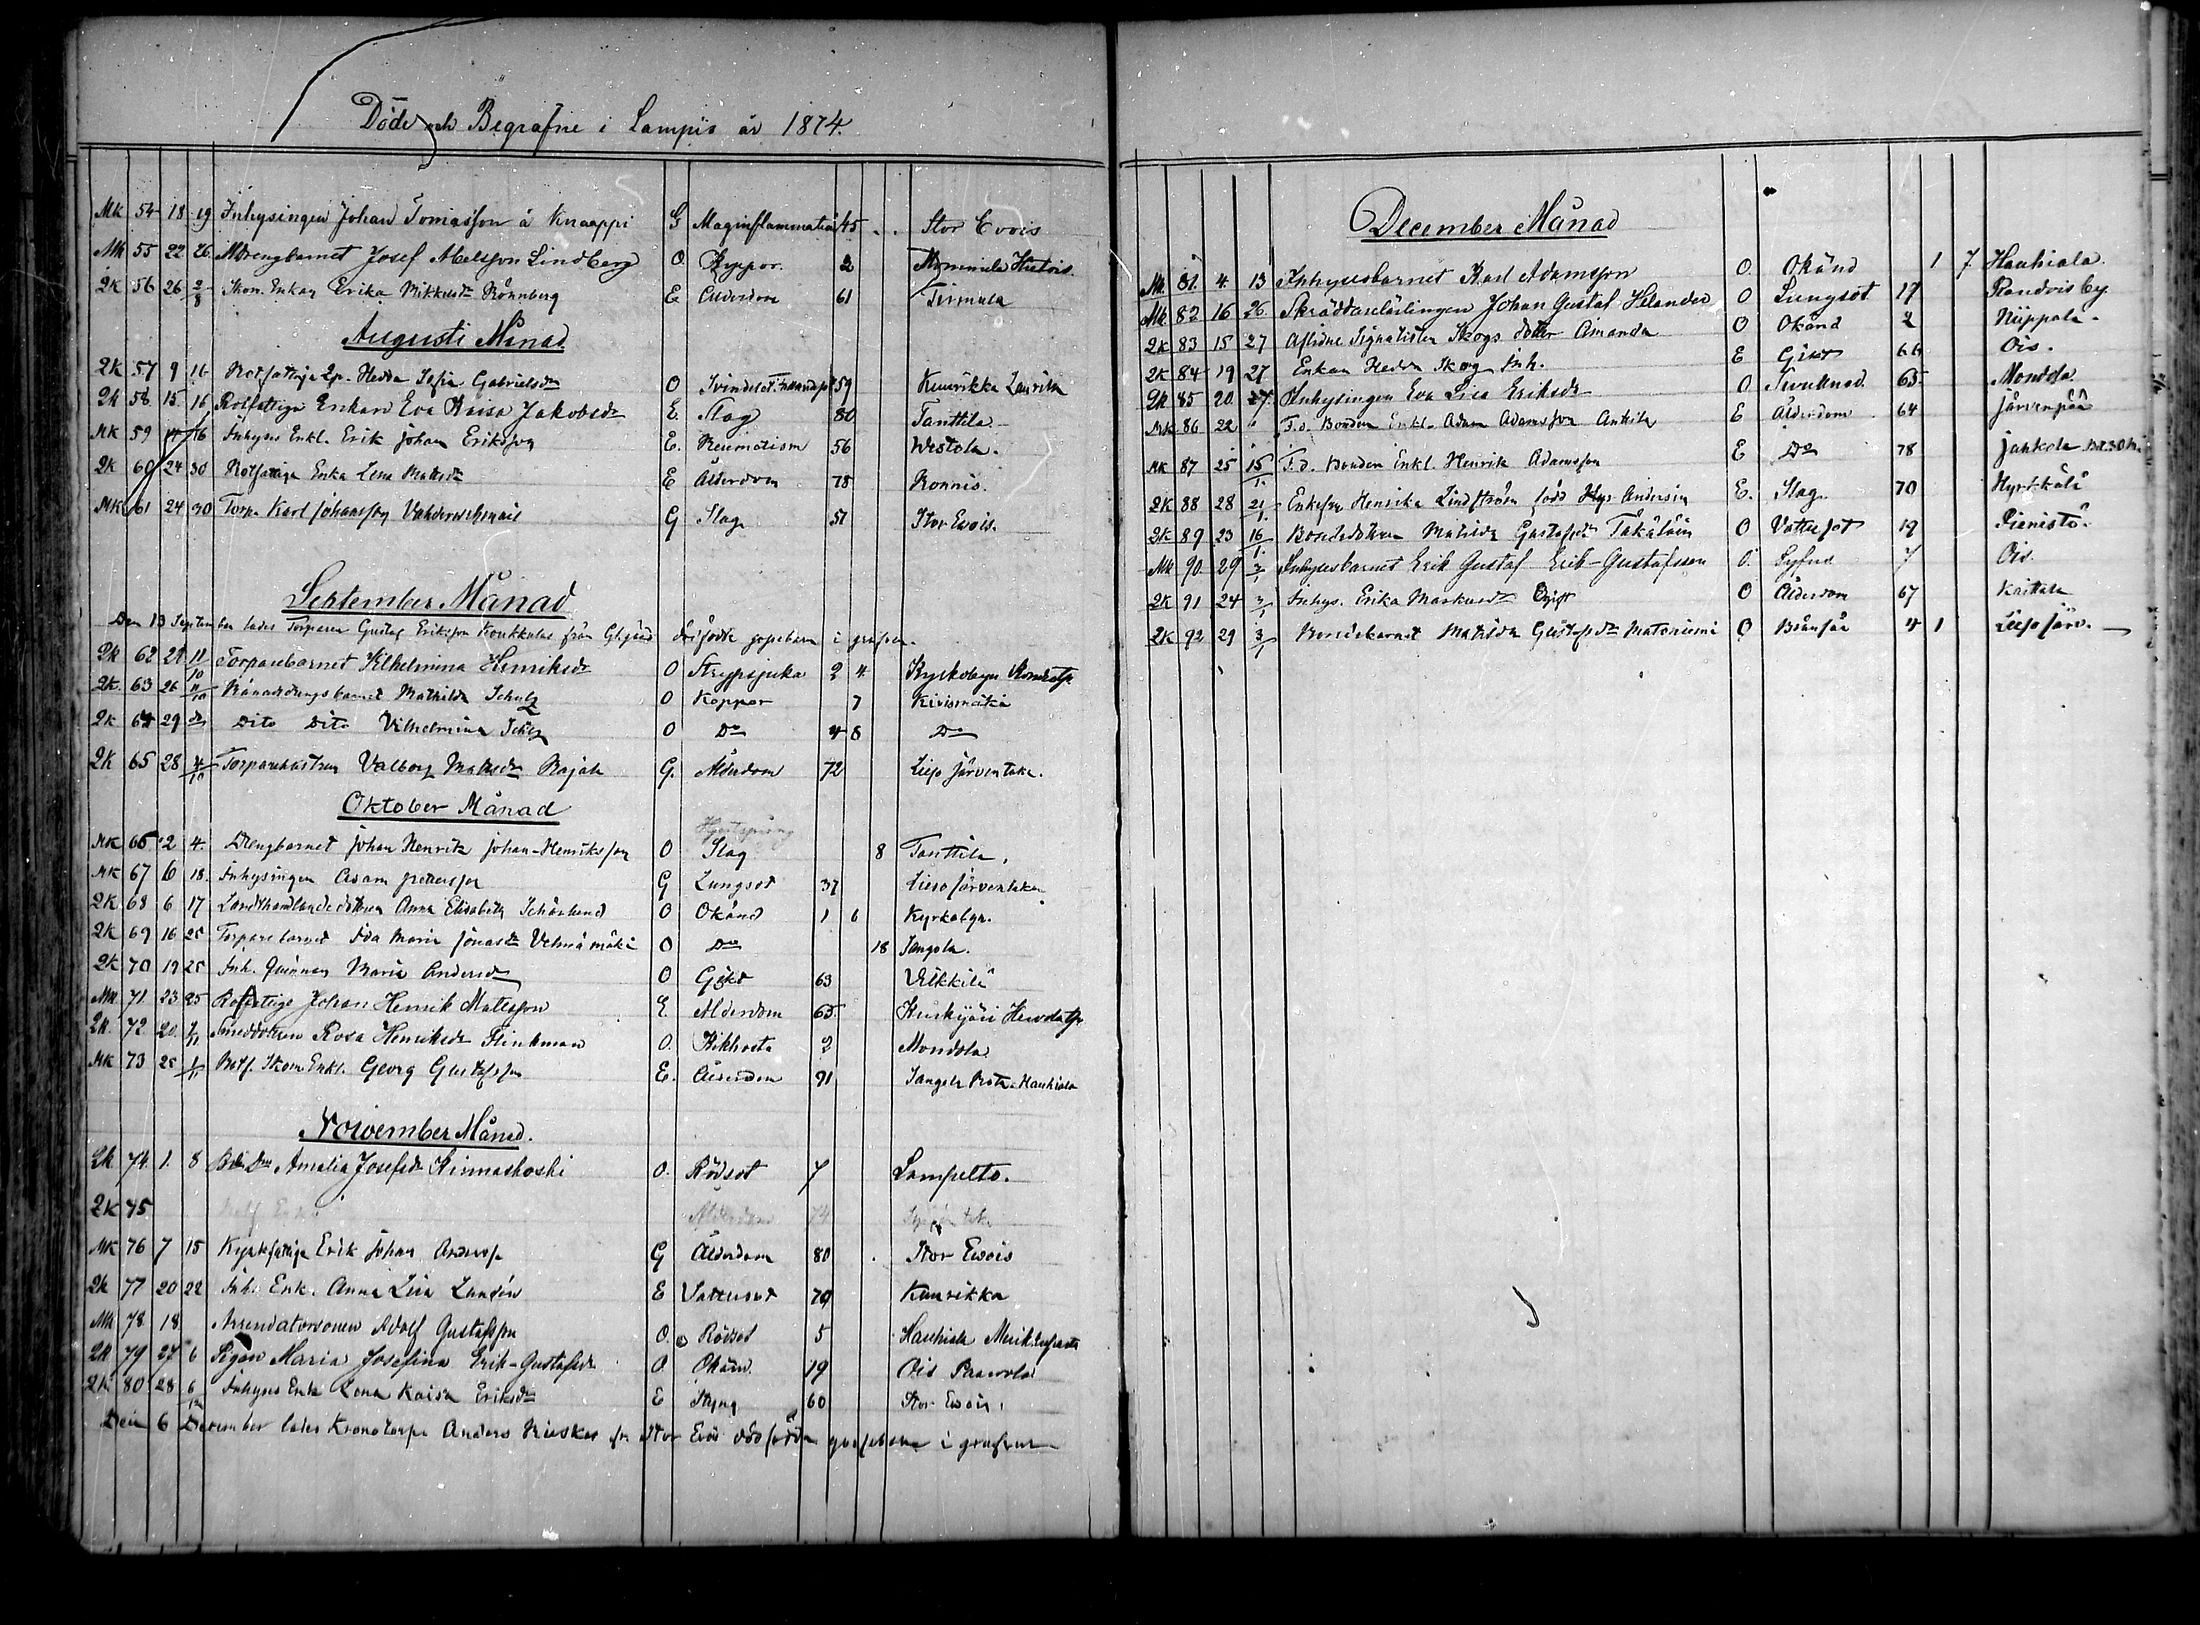 Döde och Begrafne i Lampis år 1874.
MK 54 18 19 Inhysingen Johan Tomasson å Knaappi G Maginflammation 45 Stor Evois
Mk 55 22 26 Drengbarnet Josef Abelsson Lindberg O Koppor 2 Mommila Hietois
QK 56 26 2/8 Skom. Enkan Erika Mikkelsdr Rönnberg E Ålderdom 61 Tirmula
Augusti Månad
QK 57 9 16 Rotfattige Qp. Hedda Sofia Gabrielsdr O 59 Kuurikka Laurila
QK 58 15 16 Rotfattige Enkan Eva Kaisa Jakobsdr E Slag 80 Tanttila
MK 59 16 Inhyses Enkl. Erik Johan Eriksson E. Reumatism 56 Westola.
QK 60 24 30 Rotfattige Enka Lena Mattsdr E Ålderdom 78 Ronnis.
MK 61 24 30 Torp. Karl Johansson G Slag 51 Stor Evois.
September Månad
Den 13 September lades Torparen Gustaf Eriksson Koukkulas från dödfödde gossebarn i grafven.
QK 62 21 11/10 Torparebarnet Vilhelmina Henriksdr O Strypsjuka 2 4 Kyrkobyn
QK 63 26 11/10 Månadsdrengsbarnet Mathilda Schulz O Koppor 7 Kivismäki
QK 64 29 do Dito Dito Vilhelmina Schulz O Do 4 8 Do
QK 65 28 4/10 Torparehustrun Valborg Mattsdr Rajala G. Ålderdom 72 Lieso Järventaka.
Oktober Månad
Hjertsprång
MK 66 2 4. Drengbarnet Johan Henrik Johan-Henriksson O Slag 8 Tanttila.
MK 67 6 18. Inhysingen Adam Petersson G Lungsot 37 Lieso Järventaka
QK 68 6 17 Landthandlandedottren Anna Elisabeth O Okänd 1 6 Kyrkobyn.
QK 69 16 25 Torparebarnet Ida Maria Jonasdr Vehmä mäki O Do 18 Jangola.
QK 70 19 25 Inh. Qvinnan Maria Andersdr O Gikt 63 Vilkkilä
MK 71 23 25 Rotfattige Johan Henrik Matsson E Ålderdom 65 Kurkijäri
QK 72 20 1/11 Smeddottren Rosa Henriksdr Flinkman O. Kikhosta 2 Mondola
MK 73 25 1/11 Rotf. Skom. Enkl. Georg Gustafsson E. Ålderdom 91 Jangola Hauhiala
November Månad.
QK 74 1. 8 Amalia Josefsdr Kinnaskoski O. Rödsot 7 Lampelto.
QK 75 Rotf Enk Ålderdom 74
MK 76 7 15 Kyrkfattige Erik Johan Andersson G Ålderdom 80 Stor Evois
QK 77 20 22 Inh. Enk. Anna Lisa Lundén E Vattusot 79 Kuurikka
MK 78 18 Arrendatorsonen Adolf Gustafsson O. Rödsot 5 Hauhiala
QK 79 27 6 Pigan Maria Josefina Erik-Gustafsdr O. Okänd. 19 Ois Paavola
QK 80 28 6/12 Inhyses Enk Lena Kaisa Eriksdr E Styng 60 Stor Evois.
Den 6 December lades Kronotorp. Anders fr. Stor Evois dödfödde gossebarn i grafven
December Månad
Mk 81. 4 13 Inhysesbarnet Karl Adamsson O. Okänd 1 7 Hauhiala.
Mk 82 16 26 Skräddarelärlingen Johan Gustaf Helander O Lungsot 17 Ronnisby
QK 83 15 27 Aflidne Signalisten Skogs dotter Amanda O Okänd 2 Nuppola.
QK 84 19 27 Enkan Hedda Skog Inh. E Gikt 66 Ois.
QK 85 20 27 Inhysingen Eva Lisa Eriksdr O 65 Mondola
MK 86 22 " F.d. Bonden Enkl. Adam Adamsson Anttila E Ålderdom 64 Järvenpää
MK 87 25 15/1 F.d. Bonden Enkl. Henrik Adamsson E Do 78 Jahkola
QK 88 28 21/1 Enkefru Henrika Lindström född Andersin E. Slag 70 Hyrkkälä
QK 89 23 16/1 Bondedottren Matilda Gustafsdr Takalain O Vattusot 19 Pienistö.
Mk 90 29 3/1 Inhysesbarnet Erik Gustaf Erik-Gustafsson O. 7 Ois.
QK 91 24 3/1 Inhys. Erika Markusdr Ogift O Ålderdom 67 Kaittala
QK 92 29 3/1 Bondebarnet Matilda Gustafsdr O Bränsår 4 1 Lieso järv.